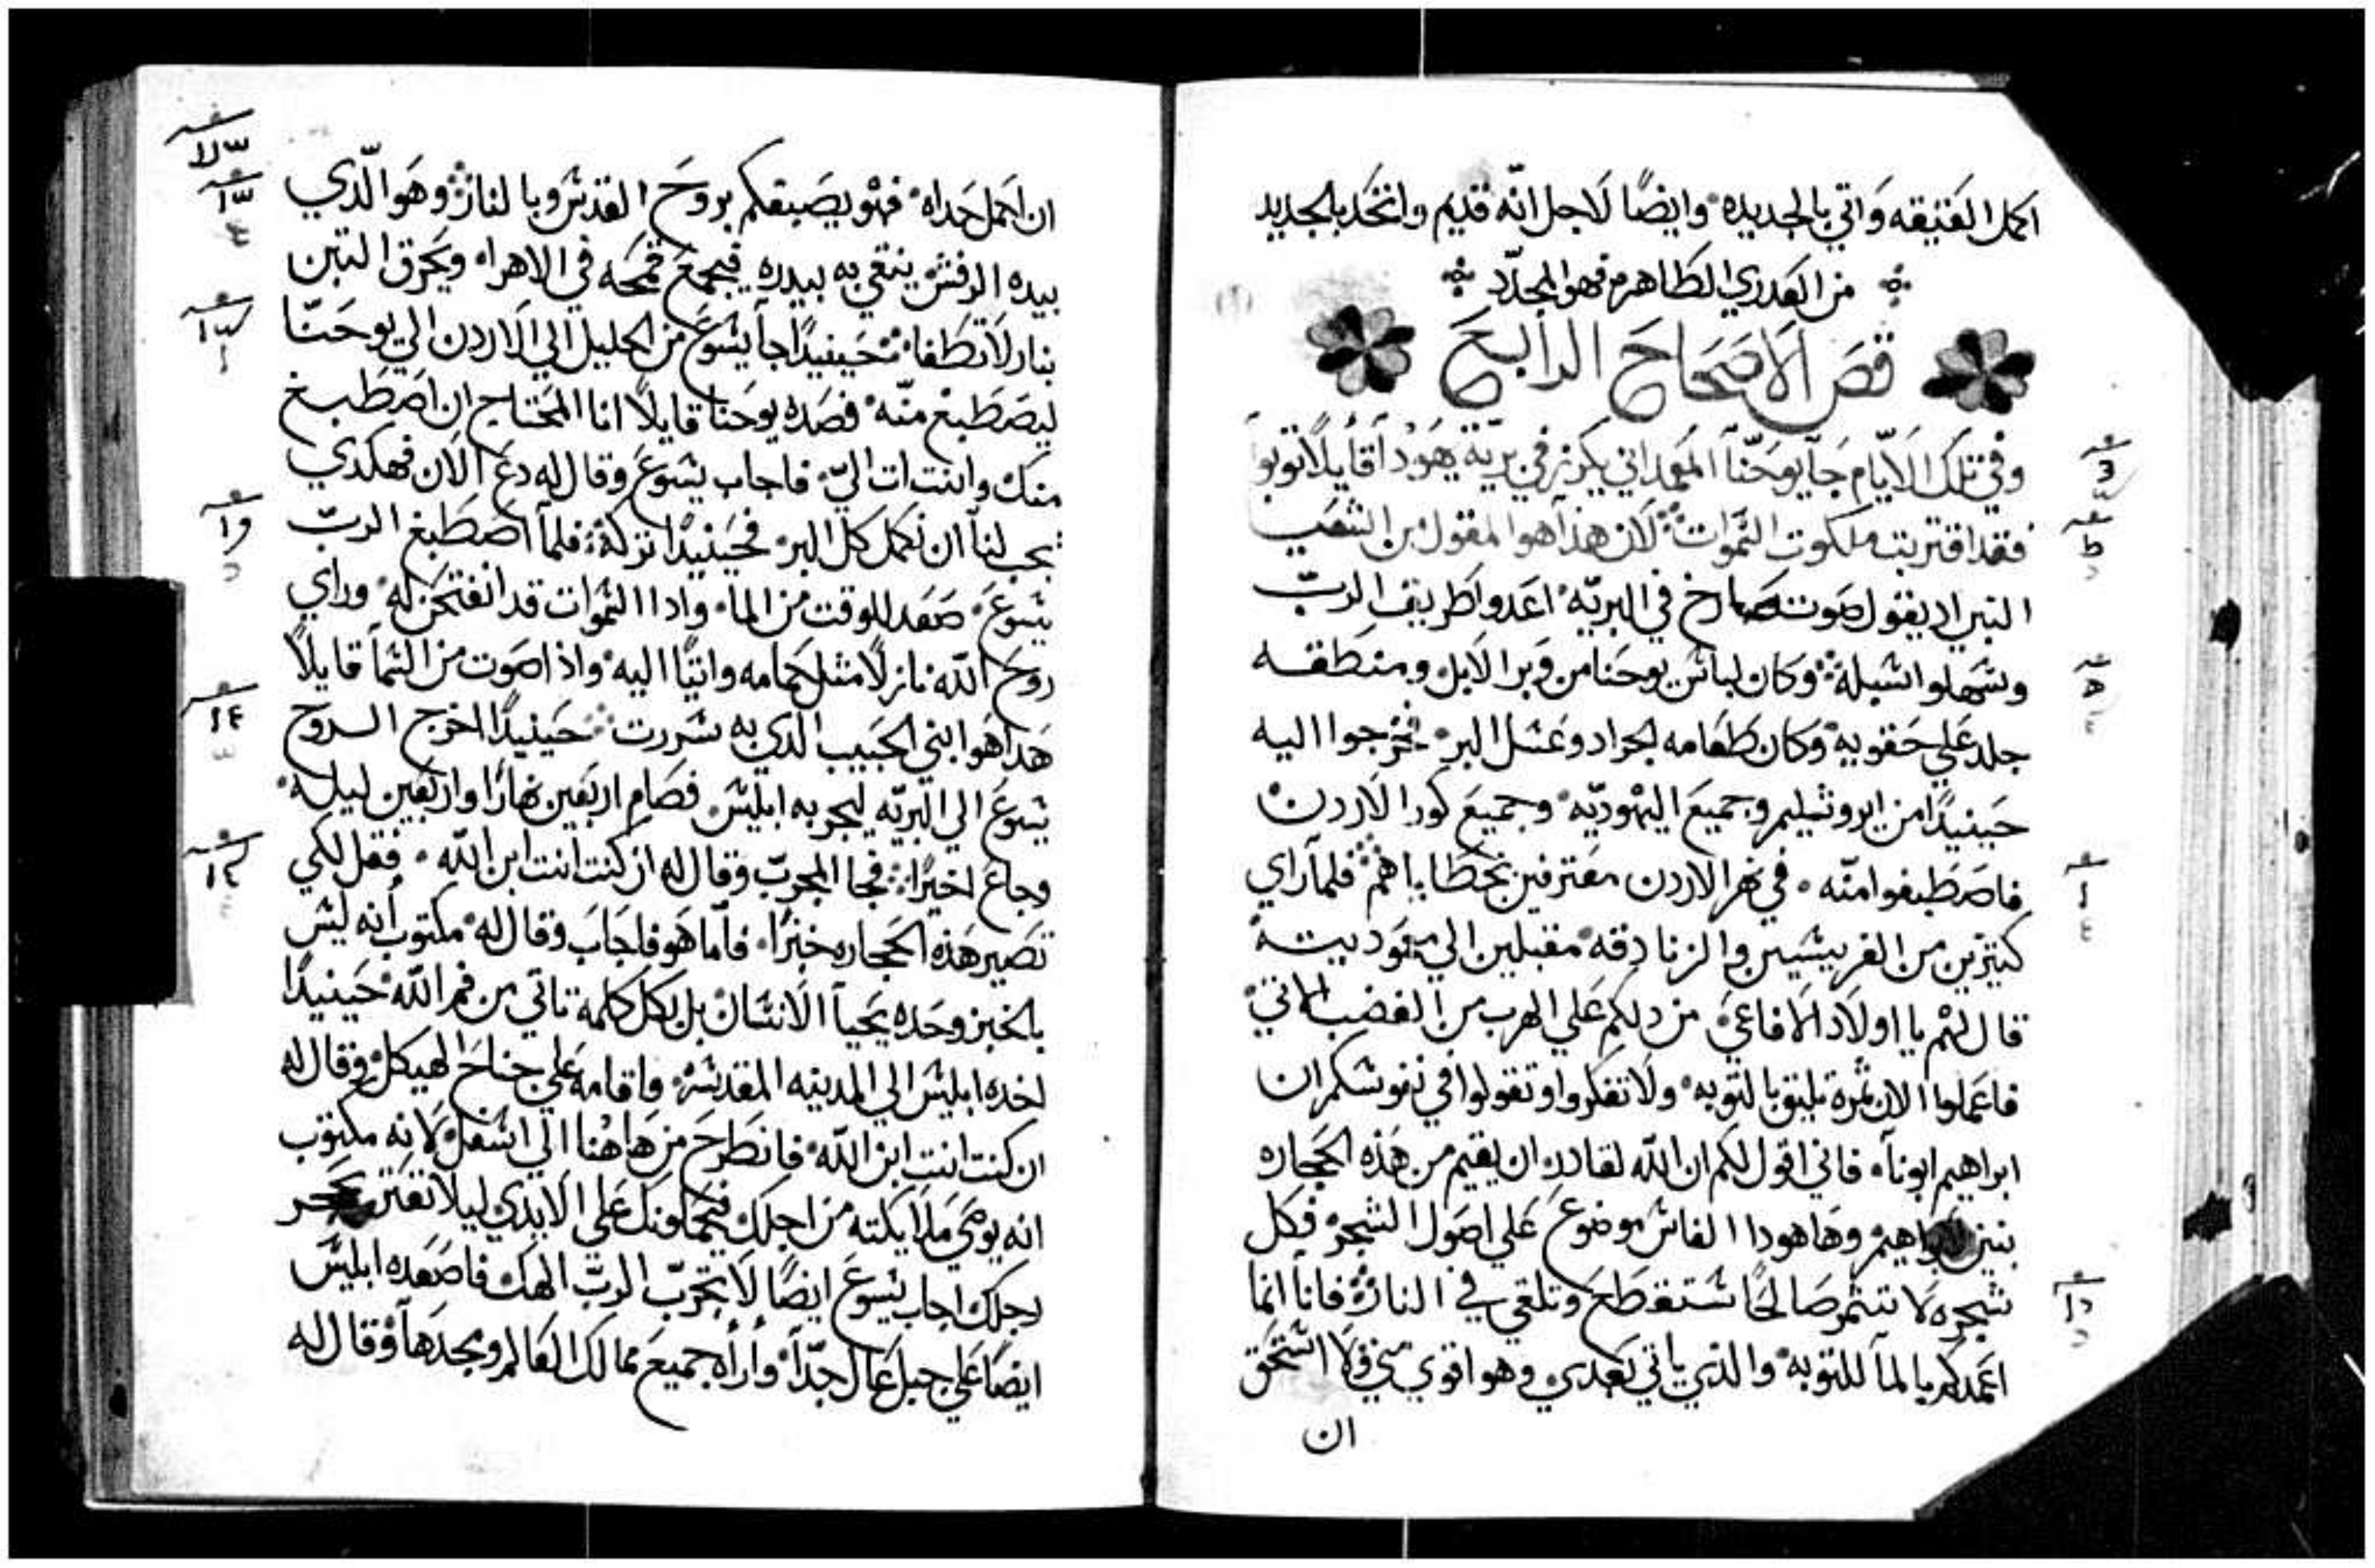 اكمل العتيقه واتي بالجديده وايضًا لاجل انه قديم واتخد بالجديد
من العدري الطاهره فهو المجدّد
قص الاصحاح الرابع
وفي تلك الايّام جآ يوحنّا المعمداني يكرز في بريّة يهودا قايلًا توبوا
فقد اقتربت ملكوت السموات لان هذا هو المقول من اشعيا
النبي اد يقول صوت صارخ في البريّه اعدوا طريق الربّ
وسهلوا سبله وكان لباس يوحنا من وبر الابل ومنطقه
جلد علي حقويه وكان طعامه الجراد وعسل البر فخرجوا اليه
حينيدًا من ايروشيليم وجميع اليهوديّه وجميع كور الاردن
فاصطبغوا منّه في نهر الاردن معترفين بخطاياهم فلمآ راي
كتيرين من الفريسيين والزنادقه مقبلين الي معموديته
قال لهم يا اولاد الافاعي من دلكم علي الهرب من الغضب الاتي
فاعملوا الان تمرة تليق بالتوبه ولا تفكروا وتقولوا في نفوسكم ان
ابراهيم ابونآ فاني اقول لكم ان الله لقادر ان يقيم من هذه الحجاره
بنين لابراهيم وها هودا الفاس موضوع علي اصول الشجر فكل
شجره لا تتمر صالحًا ستقطع وتلقي في النار فانآ انما
اعمدكم بالمآ للتوبه والذي ياتي بعدي وهو اقوي مني فلا استحق
ان
ان احمل حداه فهو يصبغكم بروح القدس وبالنار وهو الّدي
بيده الرفش ينقي به بيدره فيجمع قمحه في الاهراء ويحرق التبن
بنار لا تطفا حينيدًا جآ يسوع من الجليل الي الاردن الي يوحنّا
ليصطبغ منّه فصده يوحنا قايلًا انا المحتاج ان اصطبغ
منك وانت ات اليّ فاجاب يسوع وقال له دع الان فهكدي
يجب لنآ ان نكمل كل البر فحينيدًا تركه فلمآ اصطبغ الربّ
يسوع صعد للوقت من المآ وادا السموات قد انفتحن له وراي
روح الله نازلًا مثل حمامه واتيًا اليه واذا صوت من السمآ قايلًا
هدا هو ابني الحبيب الدي به سررت حينيدًا اخرج الروح
يسوع الي البريّه ليجربه ابليس فصام اربعين نهارًا واربعين ليله
وجاع اخيرًا فجا المجرّب وقال له ان كنت انت ابن الله فقل لكي
تصير هذه الحجاره خبزًا فآما هو فاجاب وقال له مكتوب أنه ليس
بالخبز وحده يحيآ الانسان بل بكل كلمة تاتي من فم الله حينيدًا
اخده ابليس الي المدينه المقدسه فاقامه علي جناح الهيكل وقال له
ان كنت انت ابن الله فانطرح من هاهنا الي اسفل لانه مكتوب
انه يوصي ملايكته من اجلك فيحملونك علي الايدي ليلا تعتر بحجر
رجلك اجاب يسوع ايضًا لا تجرّب الربّ الهك فاصعده ابليس
ايضًا علي جبل عال جدًّا وأراه جميع ممالك العالم ومجدهآ وقال له